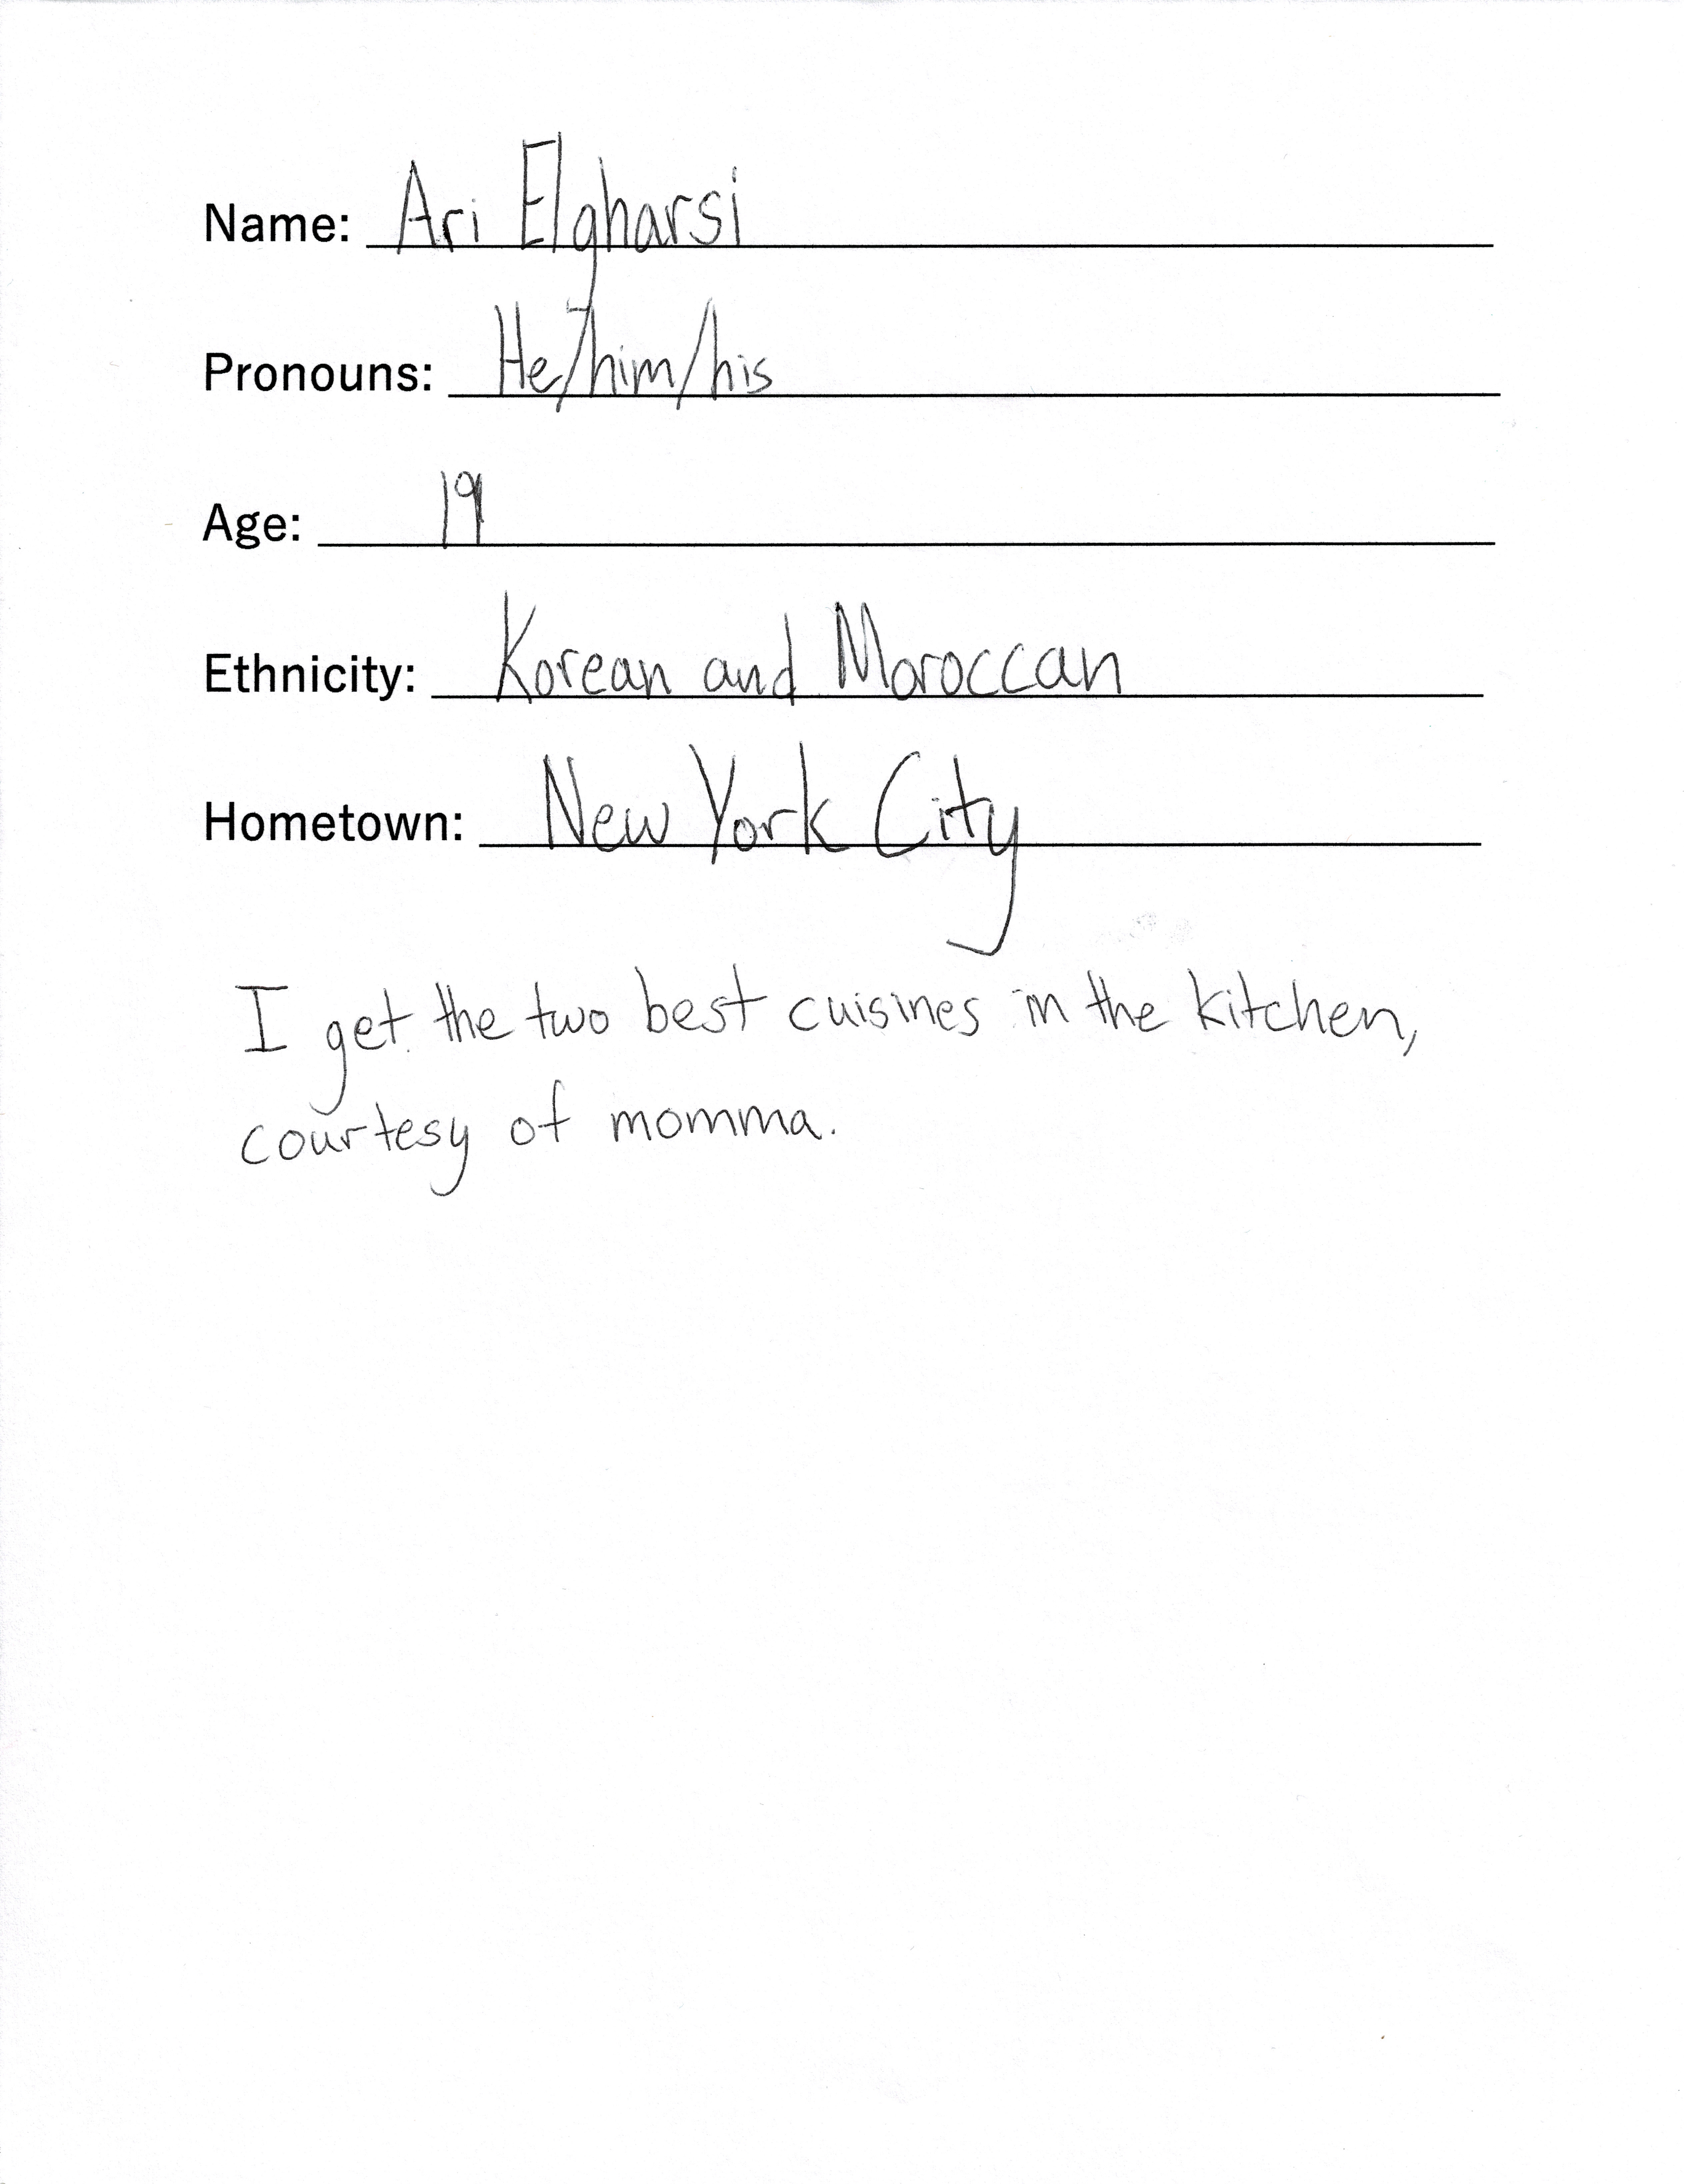 Name: Ari Elgharsi
Pronouns: He/him/his
Age: 19
Ethnicity: Korean and Moroccan
Hometown: New York City
I get the two best cuisines in the kitchen,
courtesy of momma.